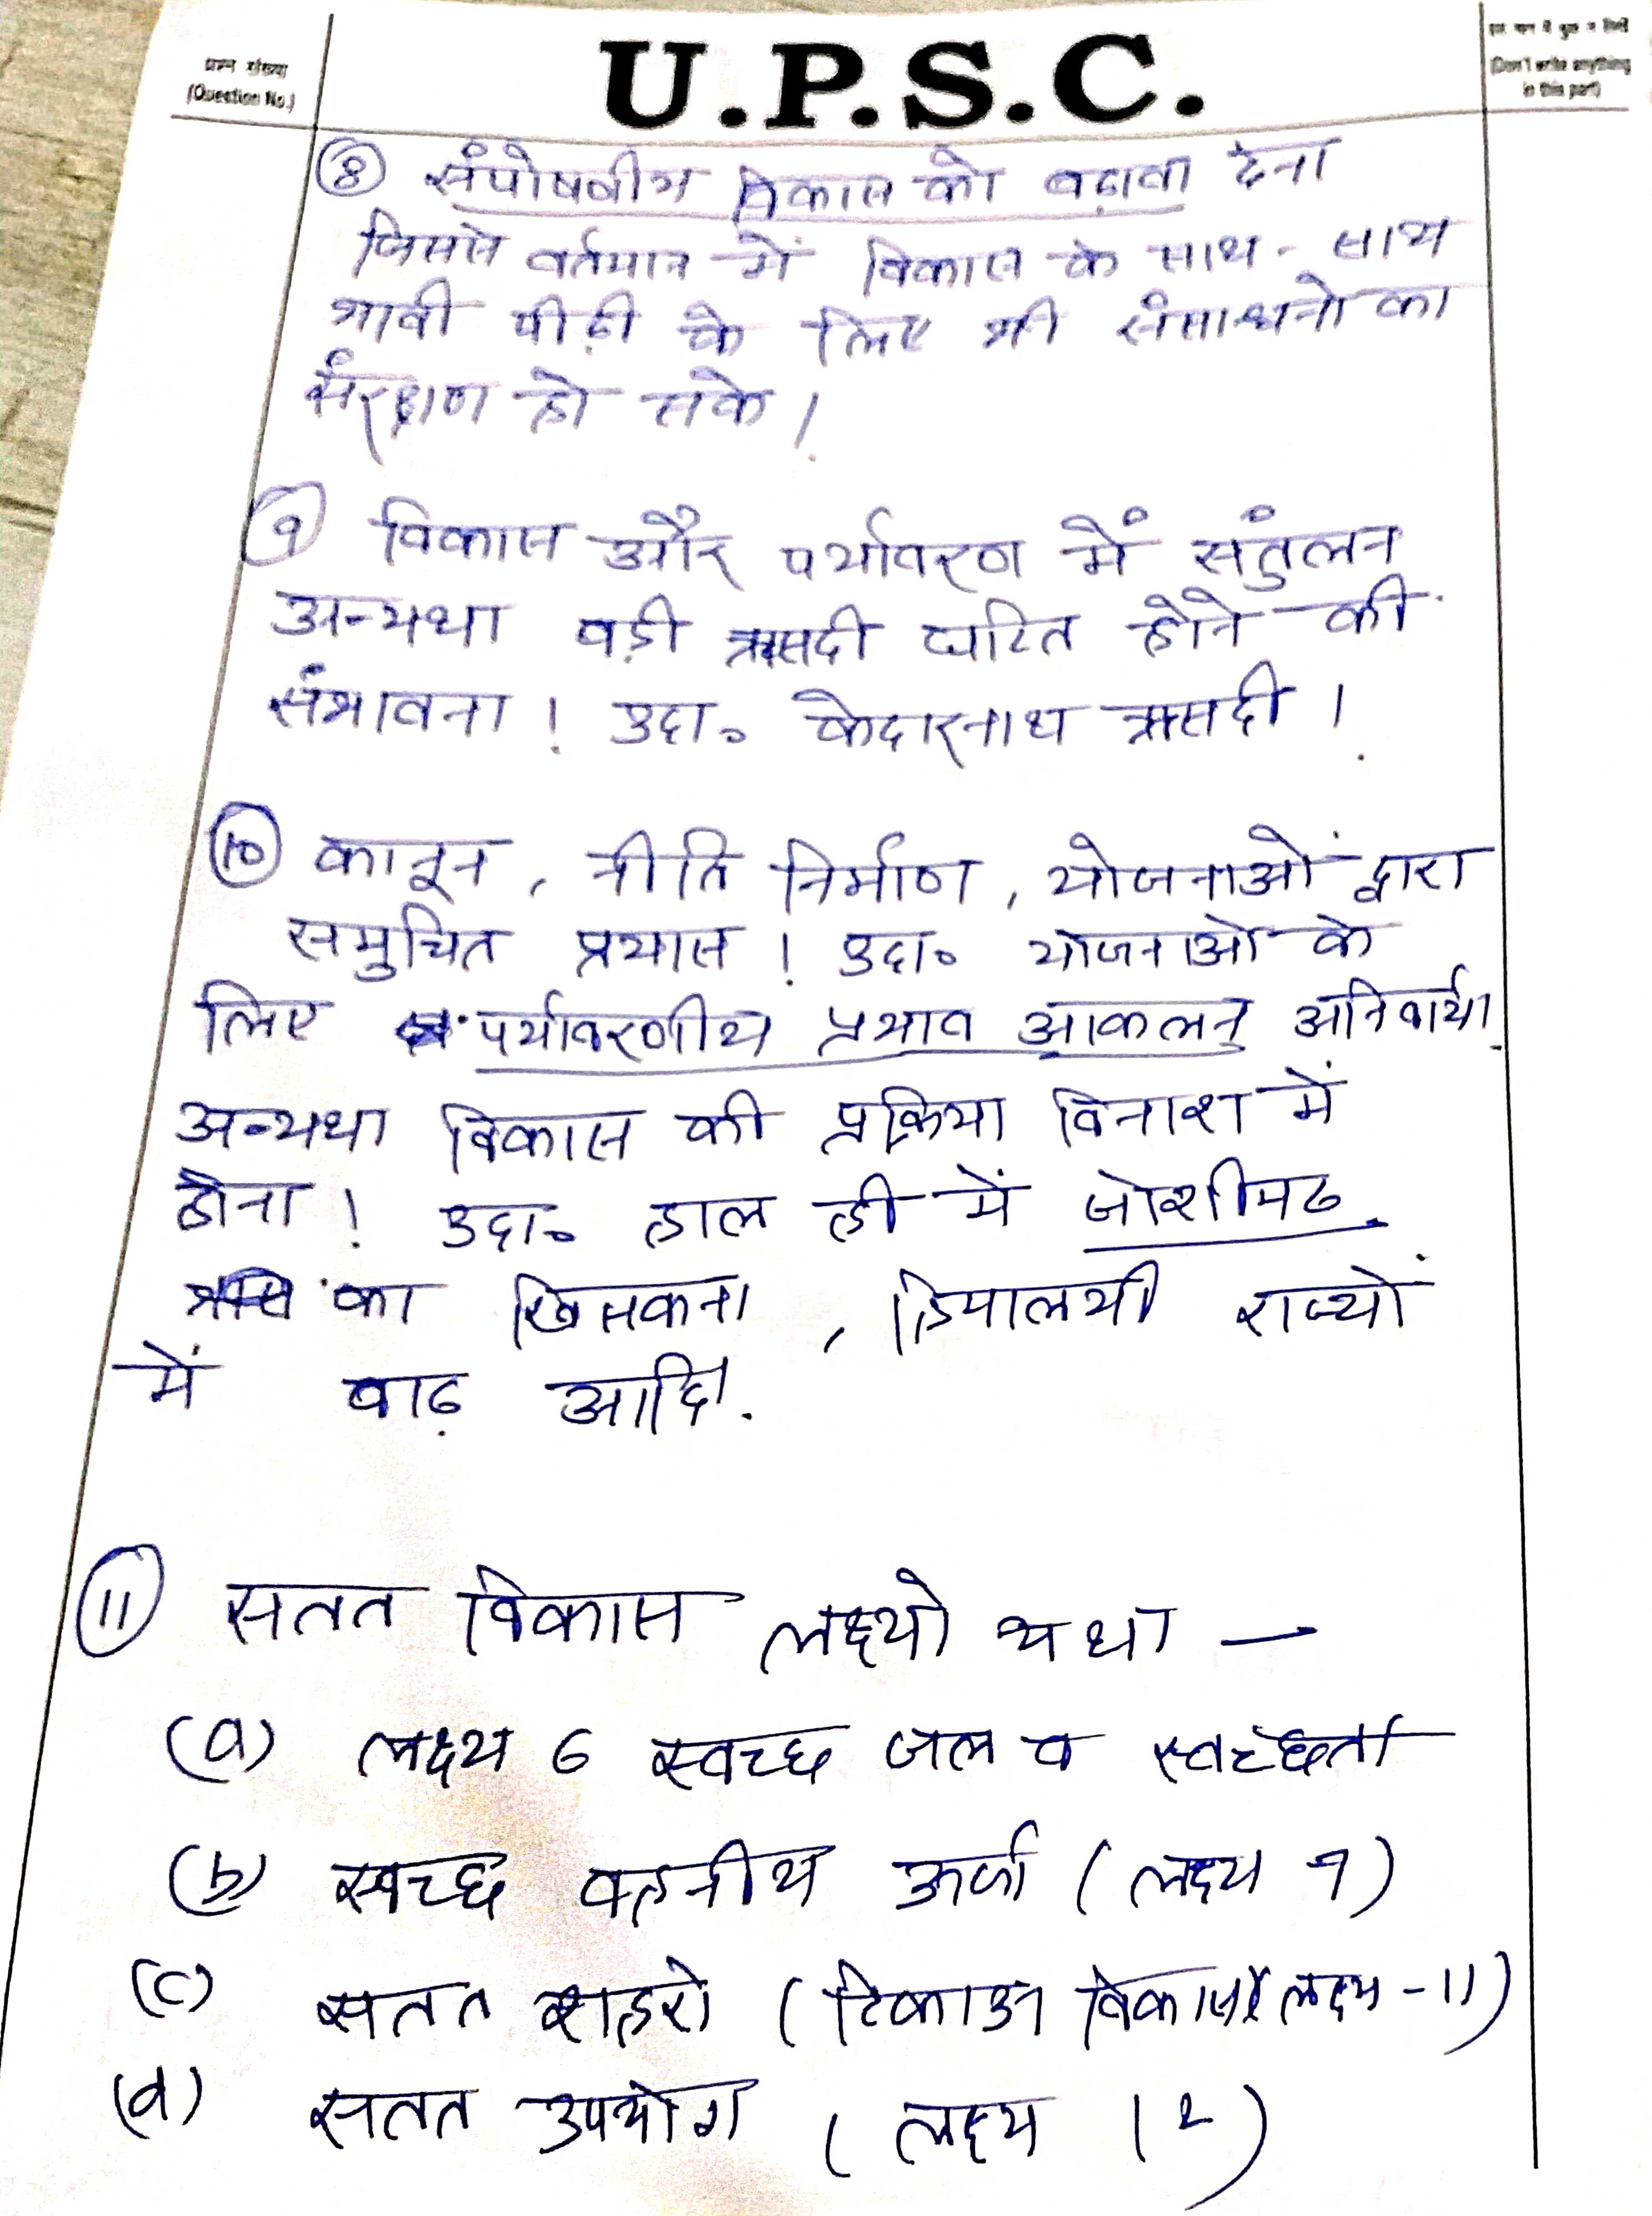 प्रश्न संख्या
(Question No.)
U.P.S.C.
इस भाग में कुछ न लिखें
(Don't write anything
in this part)
⑧ संपोषनीय विकास को बढ़ावा देना
जिससे वर्तमान में विकास के साथ - साथ
भावी पीढ़ी के लिए भी संसाधनो का
संरक्षण हो सके।
⑨ विकास और पर्यावरण में संतुलन
अन्यथा बड़ी त्रासदी घटित होने की
संभावना! उदा॰ केदारनाथ त्रासदी।
⑩ कानून, नीति निर्माण, योजनाओं द्वारा
समुचित प्रयास! उदा॰ योजनाओ के
लिए पर्यावरणीय प्रभाव आकलन अनिवार्य।
अन्यथा विकास की प्रक्रिया विनाश में
होना! उदा॰ हाल ही में जोशीमठ
का खिसकना, हिमालयी राज्यों
में बाढ़ आदि.
⑪ सतत विकास लक्ष्यो यथा —
(a) लक्ष्य 6 स्वच्छ जल व स्वच्छता
(b) स्वच्छ वहनीय ऊर्जा (लक्ष्य 7)
(c) सतत शहरो (टिकाऊ विकास) (लक्ष्य - 11)
(d) सतत उपयोग (लक्ष्य 12)